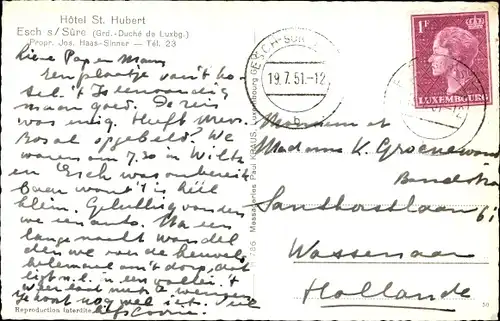 Hôtel St. Hubert
Esch s/Sûre (Grd.-Duché de Luxbg.)
Propr. Jos. Haas-Sinner — Tél. 23
Lieve Pap en Mam,
Een plaatje van't ho-
tel. 't Is eenvoudig
maar goed. De reis
was enig. Heeft Mevr.
Rosal opgebeld? We
waren om 7.30 in Wiltz
en Esch was onbereik
baar want 't is héél
klein. Gelukkig vonden
we een auto. Na een
lange nacht wandel
den we over de heuvels
helemaal om't dorp, dat
ligt n.l. in een vallei. 't
weer
je hoort nog wel iets.
liefs Corrie.
Reproduction interdite
Messageries Paul KRAUS, Luxembourg
ESCH-SUR-
19.7.51.-12
1F
LUXEMBOURG
Monsieur et
Madame K. Groeneveld
Sandhorstlaan 61
Wassenaar
Hollande